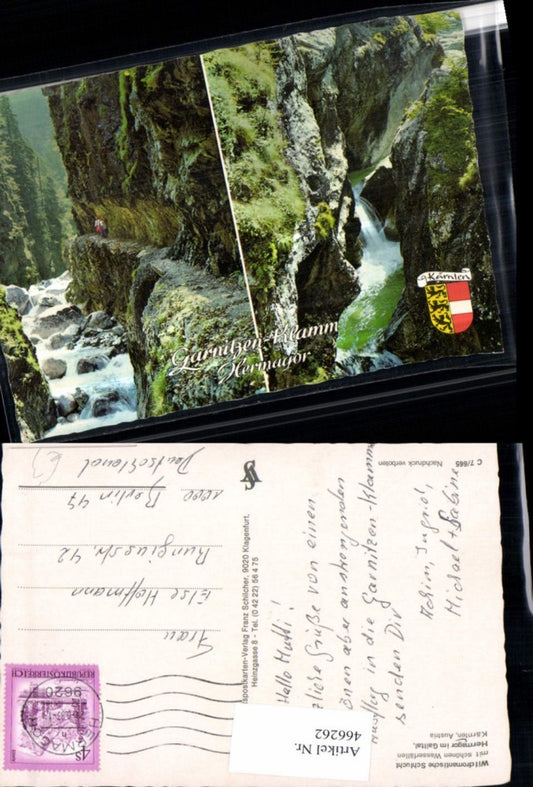 Garnitzen-Klamm
Hermagor
Kärnten
Wildromantische Schlucht
mit schönen Wasserfällen
Hermagor im Gailtal,
Kärnten, Austria
Hallo Mutti!
Grüße von einem
aber anstrengenden
Ausflug in die Garnitzen-Klamm
senden Dir
Achim, Ingrid,
Michael + Sabine
Postkarten-Verlag Franz Schilcher, 9020 Klagenfurt,
Heinzgasse 8 - Tel. (0 42 22) 56 4 75
C 7/665 Nachdruck verboten
REPUBLIK ÖSTERREICH
4 S
9620
HERMAGOR
Frau
Else Hoffmann
Rungiusstr. 42
1000 Berlin 47
Deutschland
Artikel Nr.
466262